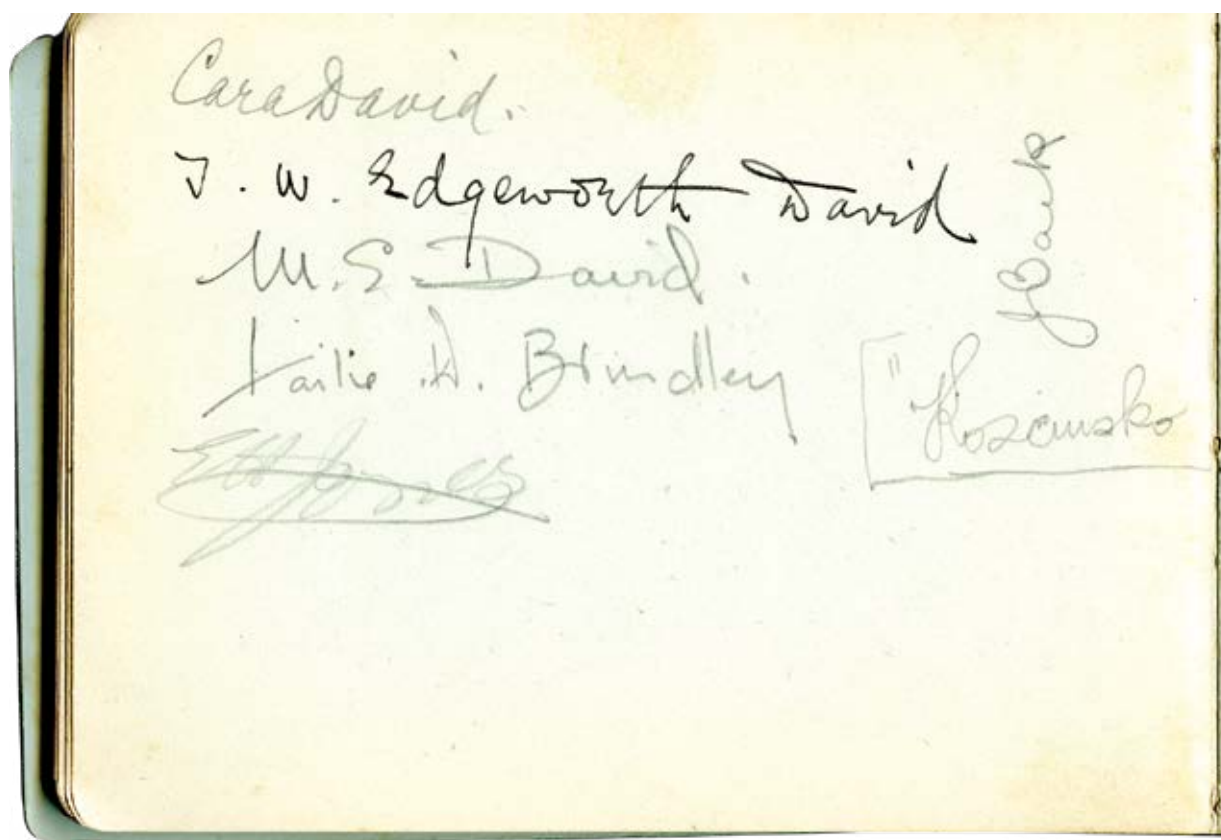 Cara David.
T. W. Edgeworth David
M. E. David.
Lailie .D. Brindley
EH Jones
"Kosciusko